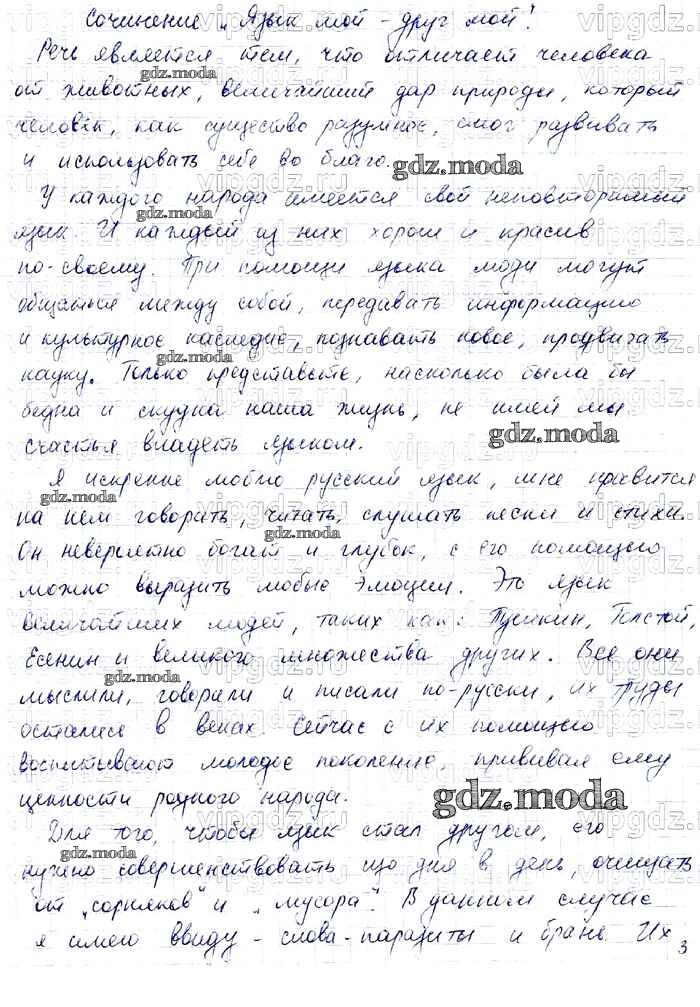 Сочинение „Язык мой - друг мой!
Речь является тем, что отличает человека
gdz.moda
от животных, величайший дар природы, который
человек, как существо разумное, смог развивать
и использовать себе во благо.
gdz.moda
У каждого народа имеется свой неповторимый
gdz.moda
язык. И каждый из них хорош и красив
по-своему. При помощи языка люди могут
общаться между собой, передавать информацию
и культурное наследие, познавать новое, продвигать
gdz.moda
науку. Только представьте, насколько была бы
бедна и скудна наша жизнь, не имей мы
gdz.moda
счастья владеть языком.
Я искренне люблю русский язык, мне нравится
gdz.moda
на нем говорить, читать, слушать песни и стихи.
gdz.moda
Он невероятно богат и глубок, с его помощью
можно выразить любые эмоции. Это язык
величайших людей, таких как: Пушкин, Толстой,
Есенин и великого множества других. Все они
gdz.moda
мыслили, говорили и писали по-русски, их труды
остались в веках. Сейчас с их помощью
воспитывают молодое поколение, прививая ему
ценности родного народа.
gdz.moda
Для того, чтобы язык стал другом, его
gdz.moda
нужно совершенствовать изо дня в день, очищать
от „сорняков" и „мусора". В данном случае
я имею ввиду - слова-паразиты и брань. Их
3